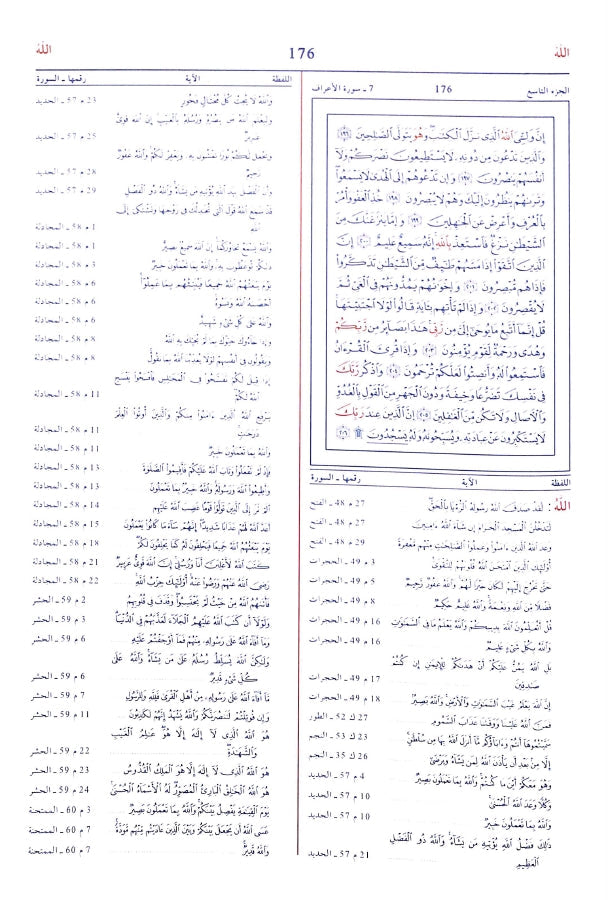 الله 176 الله
الجزء التاسع 176 7 ـ سورة الأعراف
إِنَّ وَلِـِّىَ اللهُ الَّذِى نَزَّلَ الْكِتَـٰبَ وَهُوَ يَتَوَلَّى الصَّـٰلِحِينَ ﴿١٩٦﴾
وَالَّذِينَ تَدْعُونَ مِن دُونِهِ لَا يَسْتَطِيعُونَ نَصْرَكُمْ وَلَا
أَنفُسَهُمْ يَنصُرُونَ ﴿١٩٧﴾ وَإِن تَدْعُوهُمْ إِلَى الْهُدَىٰ لَا يَسْمَعُوا
وَتَرَىٰهُمْ يَنظُرُونَ إِلَيْكَ وَهُمْ لَا يُبْصِرُونَ ﴿١٩٨﴾ خُذِ الْعَفْوَ وَأْمُرْ
بِالْعُرْفِ وَأَعْرِضْ عَنِ الْجَـٰهِلِينَ ﴿١٩٩﴾ وَإِمَّا يَنزَغَنَّكَ مِنَ
الشَّيْطَـٰنِ نَزْغٌ فَاسْتَعِذْ بِاللهِ إِنَّهُ سَمِيعٌ عَلِيمٌ ﴿٢٠٠﴾ إِنَّ
الَّذِينَ اتَّقَوْا إِذَا مَسَّهُمْ طَـٰئِفٌ مِّنَ الشَّيْطَـٰنِ تَذَكَّرُوا
فَإِذَا هُم مُّبْصِرُونَ ﴿٢٠١﴾ وَإِخْوَٰنُهُمْ يَمُدُّونَهُمْ فِى الْغَىِّ ثُمَّ
لَا يُقْصِرُونَ ﴿٢٠٢﴾ وَإِذَا لَمْ تَأْتِهِم بِـَٔايَةٍ قَالُوا لَوْلَا اجْتَبَيْتَهَا
قُلْ إِنَّمَا أَتَّبِعُ مَا يُوحَىٰ إِلَىَّ مِن رَّبِّى هَـٰذَا بَصَائِرُ مِن رَّبِّكُمْ
وَهُدًى وَرَحْمَةٌ لِّقَوْمٍ يُؤْمِنُونَ ﴿٢٠٣﴾ وَإِذَا قُرِئَ الْقُرْءَانُ
فَاسْتَمِعُوا لَهُ وَأَنصِتُوا لَعَلَّكُمْ تُرْحَمُونَ ﴿٢٠٤﴾ وَاذْكُر رَّبَّكَ
فِى نَفْسِكَ تَضَرُّعًا وَخِيفَةً وَدُونَ الْجَهْرِ مِنَ الْقَوْلِ بِالْغُدُوِّ
وَالْـَٔاصَالِ وَلَا تَكُن مِّنَ الْغَـٰفِلِينَ ﴿٢٠٥﴾ إِنَّ الَّذِينَ عِندَ رَبِّكَ
لَا يَسْتَكْبِرُونَ عَنْ عِبَادَتِهِ وَيُسَبِّحُونَهُ وَلَهُ يَسْجُدُونَ ﴿٢٠٦﴾
اللفظة الآية رقمها ـ السورة
اللهُ : لقد صدق الله رسوله الرءيا بالحق 27 م 48 ـ الفتح
لتدخلن المسجد الحرام إن شاء الله ءامنين 27 م 48 ـ الفتح
وعد الله الذين ءامنوا وعملوا الصلحت منهم مغفرة 29 م 48 ـ الفتح
أولئك الذين امتحن الله قلوبهم للتقوى 3 م 49 ـ الحجرات
حتى تخرج إليهم لكان خيرا لهم والله غفور رحيم 5 م 49 ـ الحجرات
فضلا من الله ونعمة والله عليم حكيم 8 م 49 ـ الحجرات
قل أتعلمون الله بدينكم والله يعلم ما فى السموت 16 م 49 ـ الحجرات
والله بكل شىء عليم 16 م 49 ـ الحجرات
بل الله يمن عليكم أن هدىكم للإيمن إن كنتم
صدقين 17 م 49 ـ الحجرات
إن الله يعلم غيب السموت والأرض والله بصير 18 م 49 ـ الحجرات
فمن الله علينا ووقنا عذاب السموم 27 ك 52 ـ الطور
سميتموها أنتم وءاباؤكم ما أنزل الله بها من سلطن 23 ك 53 ـ النجم
إلا من بعد أن يأذن الله لمن يشاء ويرضى 26 ك 35 ـ النجم
وهو معكم أين ما كنتم والله بما تعملون بصير 4 م 57 ـ الحديد
وكلا وعد الله الحسنى 10 م 57 ـ الحديد
والله بما تعملون خبير 10 م 57 ـ الحديد
ذلك فضل الله يؤتيه من يشاء والله ذو الفضل
العظيم 21 م 57 ـ الحديد
اللفظة الآية رقمها ـ السورة
والله لا يحب كل مختال فخور 23 م 57 ـ الحديد
وليعلم الله من ينصره ورسله بالغيب إن الله قوى
عزيز 25 م 57 ـ الحديد
ويجعل لكم نورا تمشون به ويغفر لكم والله غفور
رحيم 28 م 57 ـ الحديد
وأن الفضل بيد الله يؤتيه من يشاء والله ذو الفضل 29 م 57 ـ الحديد
قد سمع الله قول التى تجدلك فى زوجها وتشتكى إلى
الله 1 م 58 ـ المجادلة
والله يسمع تحاوركما إن الله سميع بصير 1 م 58 ـ المجادلة
ذلكم توعظون به والله بما تعملون خبير 3 م 58 ـ المجادلة
يوم يبعثهم الله جميعا فينبئهم بما عملوا 6 م 58 ـ المجادلة
أحصىه الله ونسوه 6 م 58 ـ المجادلة
والله على كل شىء شهيد 6 م 58 ـ المجادلة
وإذا جاءوك حيوك بما لم يحيك به الله 8 م 58 ـ المجادلة
ويقولون فى أنفسهم لولا يعذبنا الله بما نقول 8 م 58 ـ المجادلة
إذا قيل لكم تفسحوا فى المجلس فافسحوا يفسح
الله لكم 11 م 58 ـ المجادلة
يرفع الله الذين ءامنوا منكم والذين أوتوا العلم
درجت 11 م 58 ـ المجادلة
والله بما تعملون خبير 11 م 58 ـ المجادلة
فإذ لم تفعلوا وتاب الله عليكم فأقيموا الصلوة 13 م 58 ـ المجادلة
وأطيعوا الله ورسوله والله خبير بما تعملون 13 م 58 ـ المجادلة
ألم تر إلى الذين تولوا قوما غضب الله عليهم 14 م 58 ـ المجادلة
أعد الله لهم عذابا شديدا إنهم ساء ما كانوا يعملون 15 م 58 ـ المجادلة
يوم يبعثهم الله جميعا فيحلفون له كما يحلفون لكم 18 م 58 ـ المجادلة
كتب الله لأغلبن أنا ورسلى إن الله قوى عزيز 21 م 58 ـ المجادلة
رضى الله عنهم ورضوا عنه أولئك حزب الله 22 م 58 ـ المجادلة
فأتىهم الله من حيث لم يحتسبوا وقذف فى قلوبهم 2 م 59 ـ الحشر
ولولا أن كتب الله عليهم الجلاء لعذبهم فى الدنيا 3 م 59 ـ الحشر
وما أفاء الله على رسوله منهم فما أوجفتم عليه 6 م 59 ـ الحشر
ولكن الله يسلط رسله على من يشاء والله على
كل شىء قدير 6 م 59 ـ الحشر
ما أفاء الله على رسوله من أهل القرى فلله وللرسول 7 م 59 ـ الحشر
وإن قوتلتم لننصرنكم والله يشهد إنهم لكذبون 11 م 59 ـ الحشر
هو الله الذى لا إله إلا هو علم الغيب
والشهدة 22 م 59 ـ الحشر
هو الله الذى لا إله إلا هو الملك القدوس 23 م 59 ـ الحشر
هو الله الخلق البارئ المصور له الأسماء الحسنى 24 م 59 ـ الحشر
يوم القيمة يفصل بينكم والله بما تعملون بصير 3 م 60 ـ الممتحنة
عسى الله أن يجعل بينكم وبين الذين عاديتم منهم مودة 7 م 60 ـ الممتحنة
والله قدير 7 م 60 ـ الممتحنة